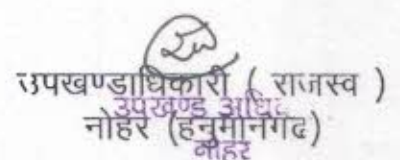 उपखण्डाधिकारी ( राजस्व )
उपखण्ड अधि
नोहर (हनुमानगढ)
नोहर